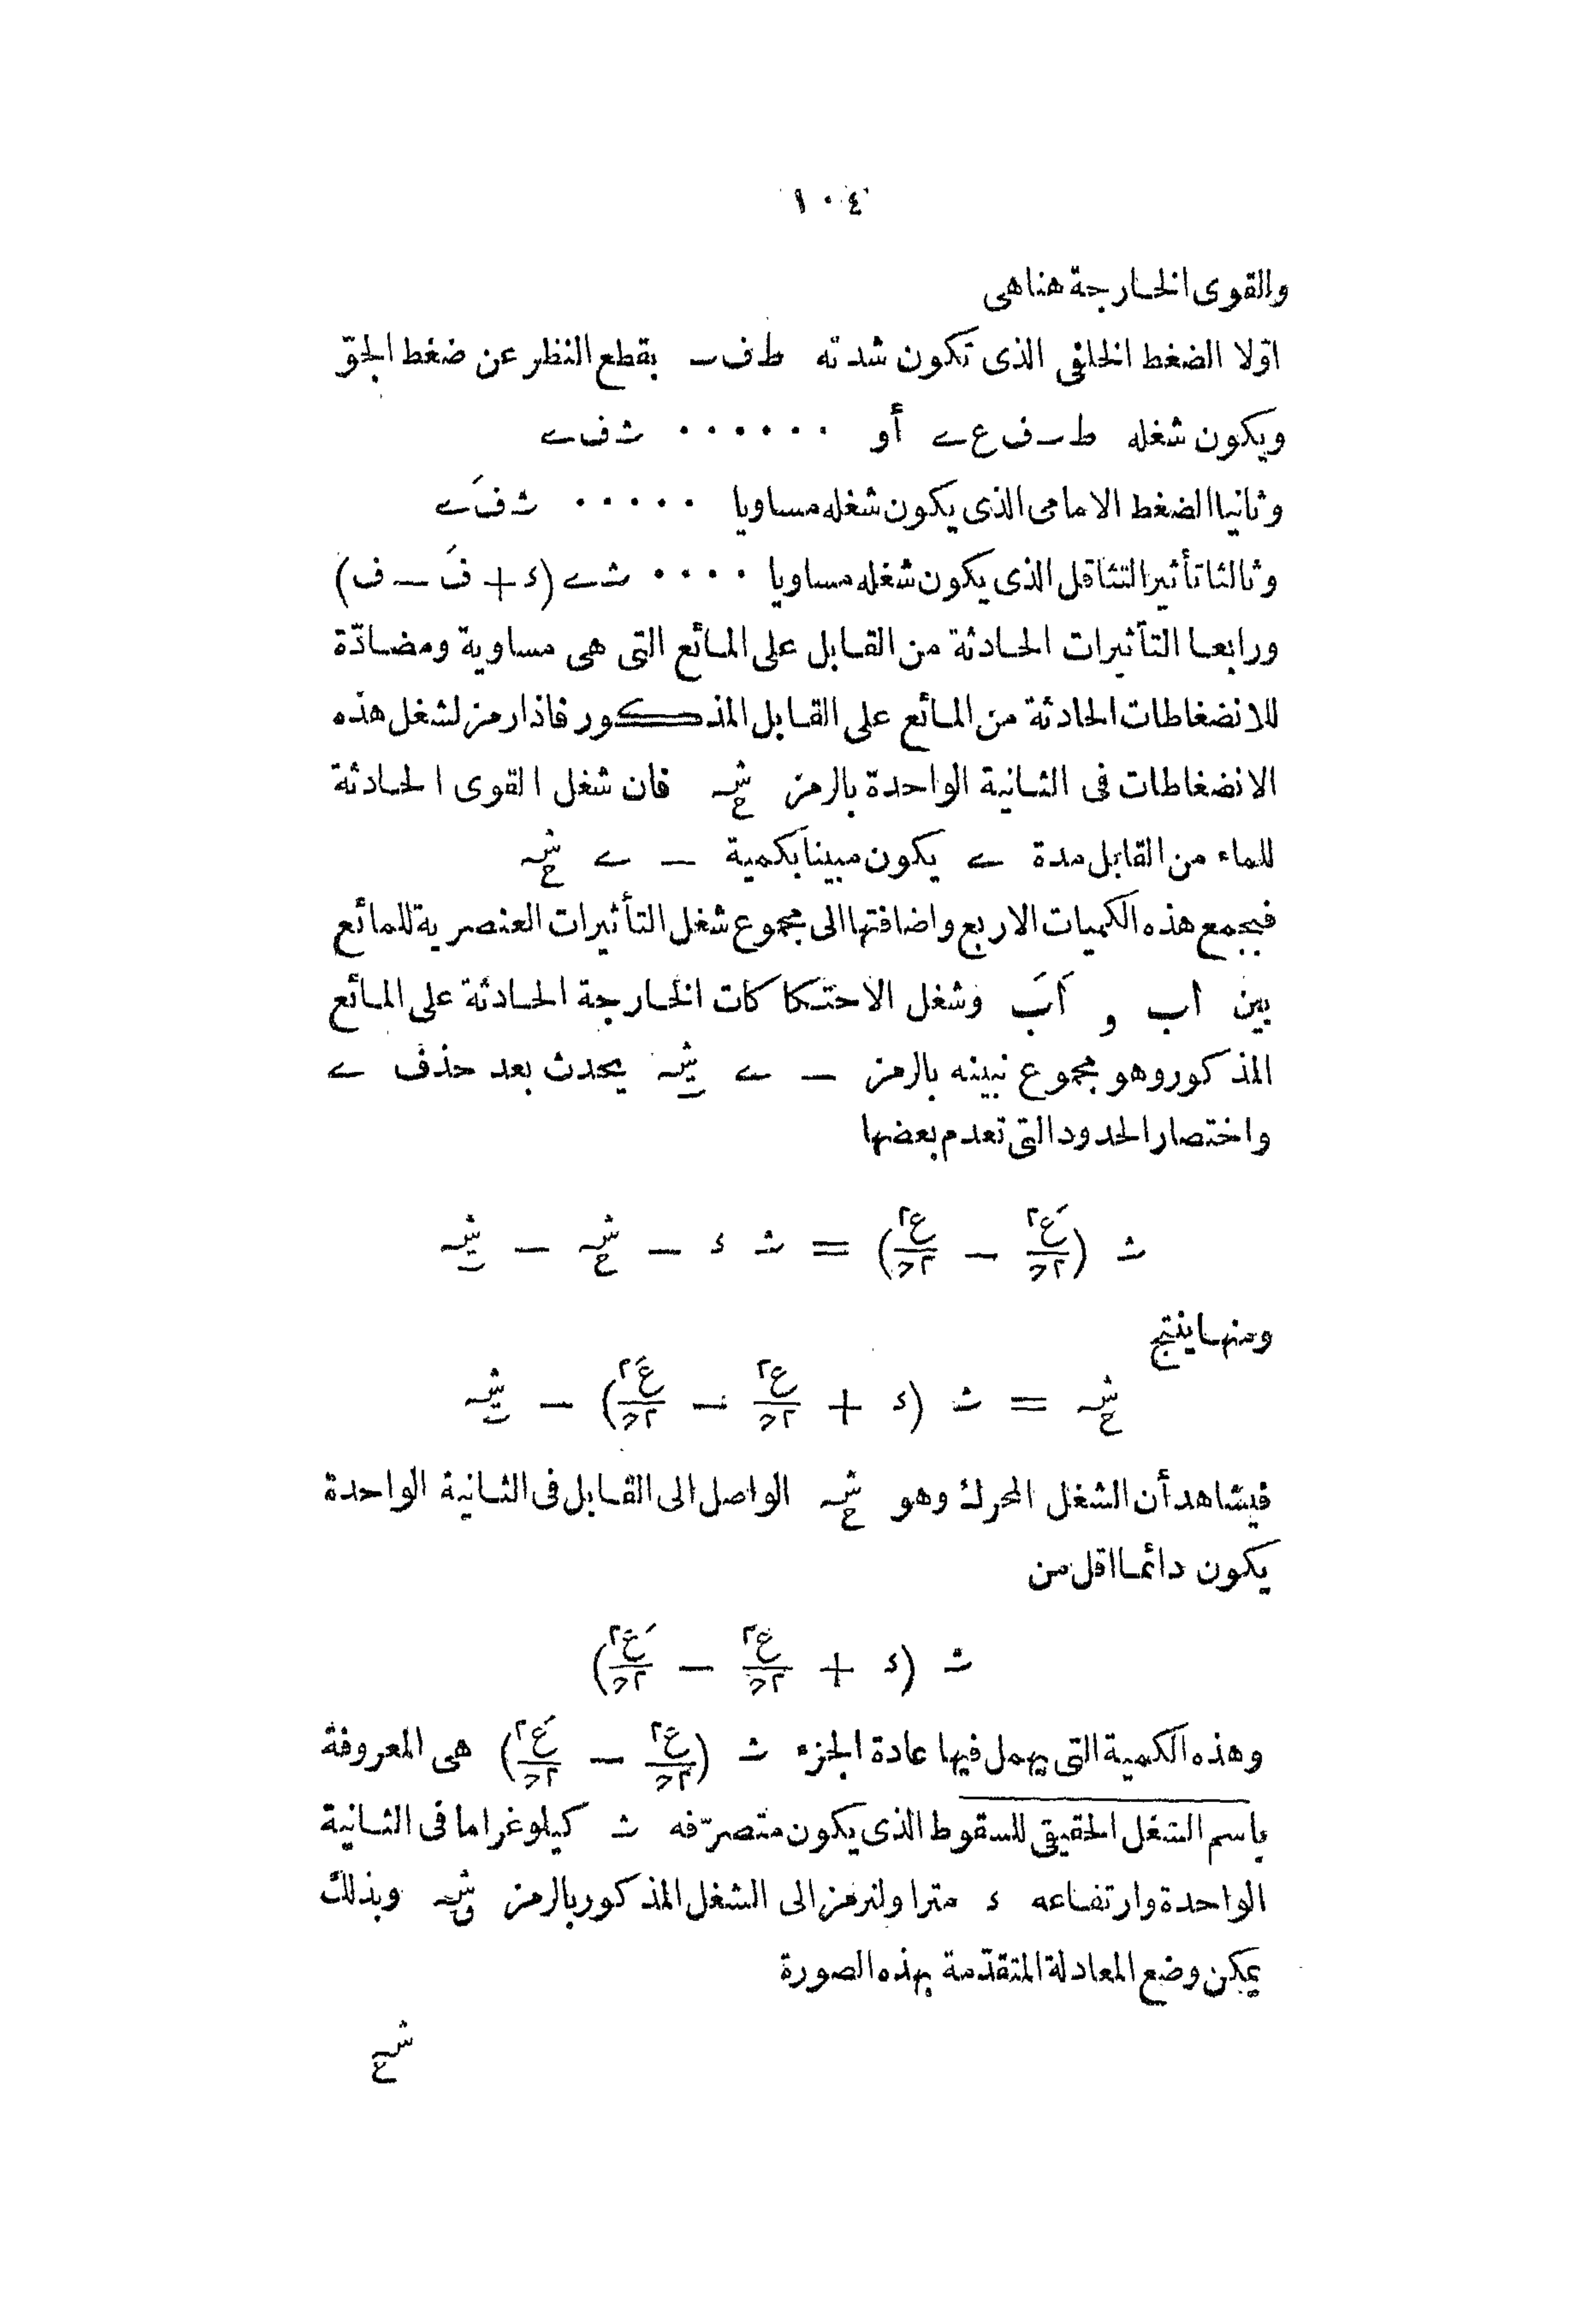 ١٠٤
والقوى الخارجة هنا هى
اوّلا الضغط الخلفى الذى تكون شدته ط ف ـ بقطع النظر عن ضغط الجوّ
ويكون شغله ط ـ ف ع ے أو ٠٠٠٠٠٠ ث ف ے
وثانيا الضغط الامامى الذى يكون شغله مساويا ٠٠٠٠٠ ث فَ ے
وثالثا تأثير التثاقل الذى يكون شغله مساويا ٠٠٠٠ ث ے (ء + فَ − ف)
ورابعا التأثيرات الحادثة من القابل على المائع التى هى مساوية ومضادّة
للانضغاطات الحادثة من المائع على القابل المذكور فاذا رمز لشغل هذه
الانضغاطات فى الثانية الواحدة بالرمز شہح فان شغل القوى الحادثة
للماء من القابل مدة ے يكون مبينا بكمية − ے شہح
فبجمع هذه الكميات الاربع واضافتها الى مجموع شغل التأثيرات العنصرية للمائع
بين اب و اَبَ وشغل الاحتكاكات الخارجة الحادثة على المائع
المذكور وهو مجموع نبينه بالرمز − ے شہـ يحدث بعد حذف ے
واختصار الحدود التى تعدم بعضها
ث (عَ٢/٢ح − ع٢/٢ح) = ث ء − شہح − شہـ
ومنها ينتج
شہح = ث (ء + ع٢/٢ح − عَ٢/٢ح) − شہـ
فيشاهد أن الشغل المحرك وهو شہح الواصل الى القابل فى الثانية الواحدة
يكون دائما اقل من
ث (ء + ع٢/٢ح − عَ٢/٢ح)
وهذه الكمية التى يهمل فيها عادة الجزء ث (ع٢/٢ح − عَ٢/٢ح) هى المعروفة
باسم الشغل الحقيقى للسقوط الذى يكون متصرّفه ث كيلوغراما فى الثانية
الواحدة وارتفاعه ء مترا ولنرمز الى الشغل المذكور بالرمز شہو وبذلك
يمكن وضع المعادلة المتقدّمة بهذه الصورة
شہح